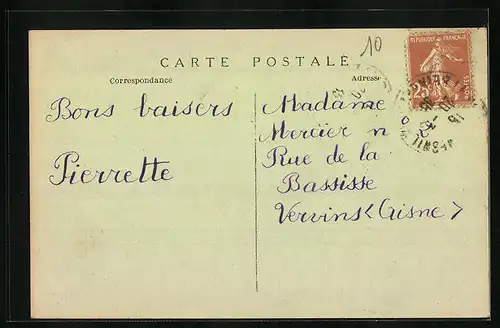 10
CARTE POSTALE
Correspondance
Adresse
RÉPUBLIQUE FRANÇAISE
25
Bons baisers
Pierrette
Madame
Mercier n
Rue de la
Bassisse
Vervins <Aisne>